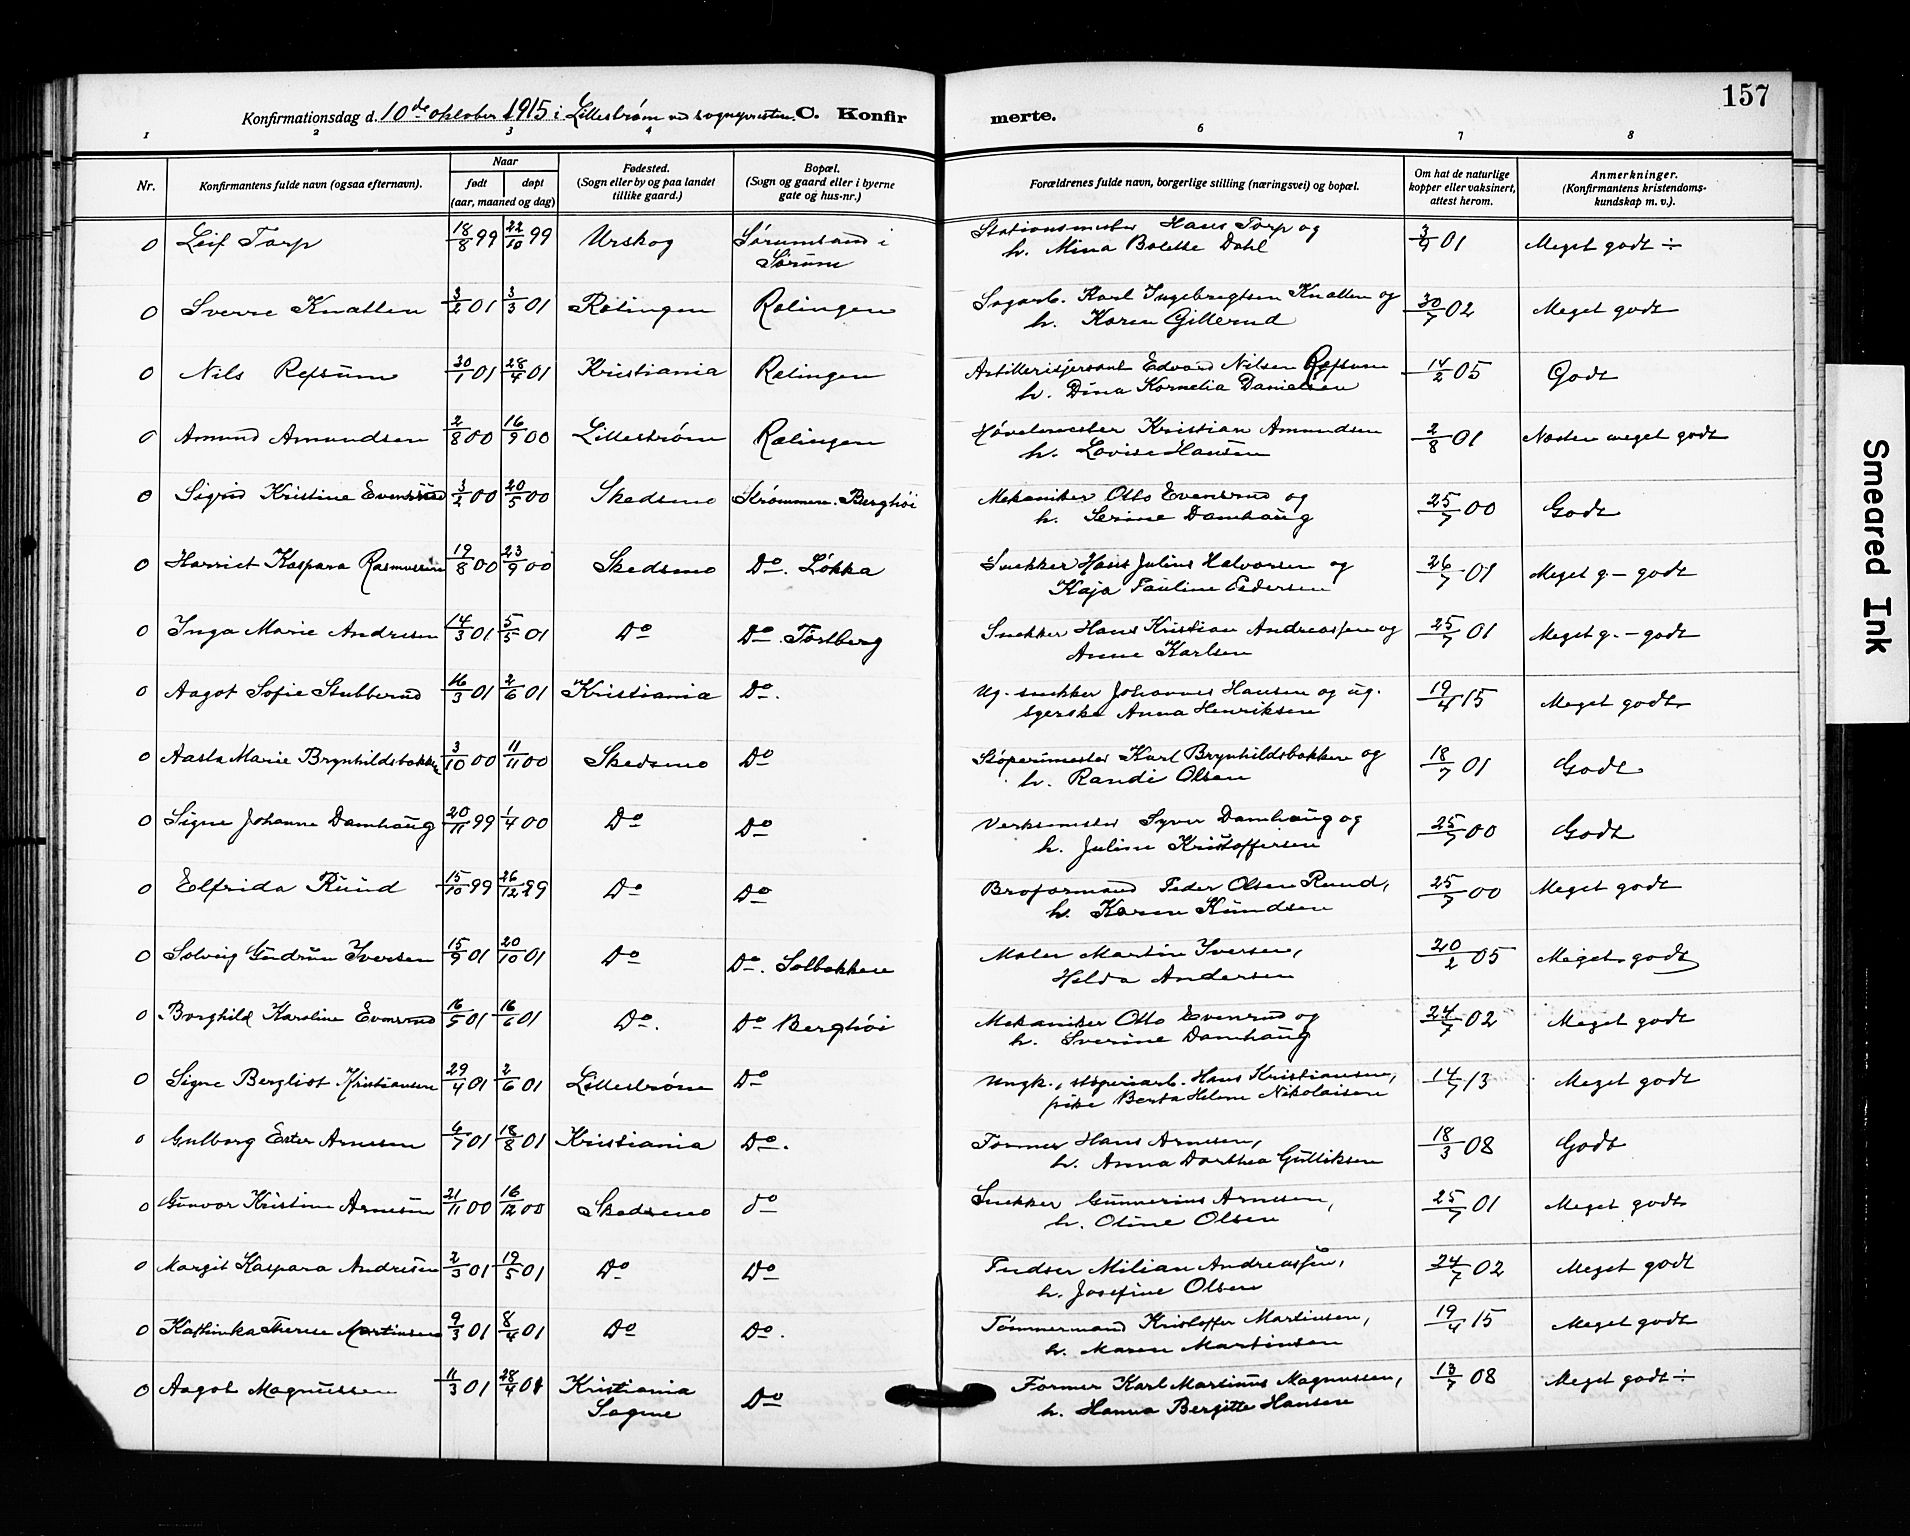 157
Konfirmationsdag d. 10de oktober 1915 i Lillestrøm ved sognepresten. C. Konfirmerte.
1 2 3 4 6 7 8
Nr. Konfirmantens fulde navn (ogsaa efternavn). Naar født døpt (aar, maaned og dag) Fødested. (Sogn eller by og paa landet tillike gaard.) Bopæl. (Sogn og gaard eller i byerne gate og hus-nr.) Forældrenes fulde navn, borgerlige stilling (næringsvei) og bopæl. Om hat de naturlige kopper eller vaksinert, attest herom. Anmerkninger. (Konfirmantens kristendoms-kundskap m. v.).
0 Leif Torp 18/8 99 22/10 99 Urskog Sørumsand i Stationsmester Hans Torp og 3/9 01 Meget godt ÷
Sørum h. Mina Bolette Dahl
0 Sverre Knatten 3/2 01 3/3 01 Rælingen Rælingen Sagarb. Karl Ingebregtsen Knatten og 30/7 02 Meget godt
h. Karen Gillerud
0 Nils Refsum 30/1 01 28/4 01 Kristiania Rælingen Artillerisjersant Edvard Nilsen Refsum 14/2 05 Godt
h. Dina Kornelia Danielsen
0 Amund Amundsen 2/8 00 16/9 00 Lillestrøm Rælingen Høvelmester Kristian Amundsen 2/8 01 Næsten meget godt
h. Lovise Hansen
0 Sigrid Kristine Evensrud 3/2 00 20/5 00 Skedsmo Strømmen. Berghøi Mekaniker Otto Evensrud og 25/7 00 Godt
h. Serine Damhaug
0 Harriet Kaspara Rasmussen 19/8 00 23/9 00 Skedsmo Do. Løkka Snekker Hans Julius Halvorsen og 26/7 01 Meget g. – godt
Kaja Pauline Pedersen
0 Inga Marie Andresen 14/3 01 5/5 01 Do Do. Torsberg Snekker Hans Kristian Andreassen og 25/7 01 Meget g. – godt
Anne Karlsen
0 Aagot Sofie Stubberud 16/3 01 2/6 01 Kristiania Do. Ug. snekker Johannes Hansen og ug. 19/4 15 Meget godt
syerske Anna Henriksen
0 Aasta Marie Brynhildsbakken 3/10 00 11/11 00 Skedsmo Do Støperimester Karl Brynhildsbakken og 18/7 01 Godt
h. Randi Olsen
0 Signe Johanne Damhaug 20/11 99 1/4 00 Do Do Verksmester Syver Damhaug og 25/7 00 Godt
h. Juline Kristoffersen
0 Elfrida Ruud 15/10 99 26/12 99 Do Do Broformand Peder Olsen Ruud, 25/7 00 Meget godt
h. Karen Knudsen
0 Solveig Gudrun Iversen 15/9 01 20/10 01 Do Do. Solbakken Maler Martin Iversen, 20/2 05 Meget godt
Hilda Andersen
0 Borghild Karoline Evensrud 16/5 01 16/6 01 Do. Do Berghøi Mekaniker Otto Evensrud og 24/7 02 Meget godt
h. Sverine Damhaug
0 Signe Bergliot Kristiansen 29/4 01 2/6 01 Lillestrøm Do Ungk., støperiarb. Hans Kristiansen, 14/7 13 Meget godt
pike Berta Helene Nikolaisen
0 Gulborg Ester Arnesen 6/7 01 18/8 01 Kristiania Do. Former Hans Arnesen, 18/3 08 Godt
h. Anna Dorthea Gulliksen
0 Gunvor Kristine Arnesen 21/11 00 16/12 00 Skedsmo do Snekker Gunnerius Arnesen, 25/7 01 Meget godt
h. Oline Olsen
0 Margit Kaspara Andresen 2/3 01 19/5 01 Do Do Pudser Milian Andreassen, 24/7 02 Meget godt
h. Josefine Olsen
0 Kathinka Therese Martinsen 9/3 01 8/4 01 Do Do. Tømmermand Kristoffer Martinsen, 19/4 15 Meget godt
h. Maren Martinsen
0 Aagot Magnussen 11/3 01 28/4 01 Kristiania Do Former Karl Martinus Magnussen, 13/7 08 Meget godt ÷
Sagene h. Hanna Bergitte Hansen
Smeared Ink